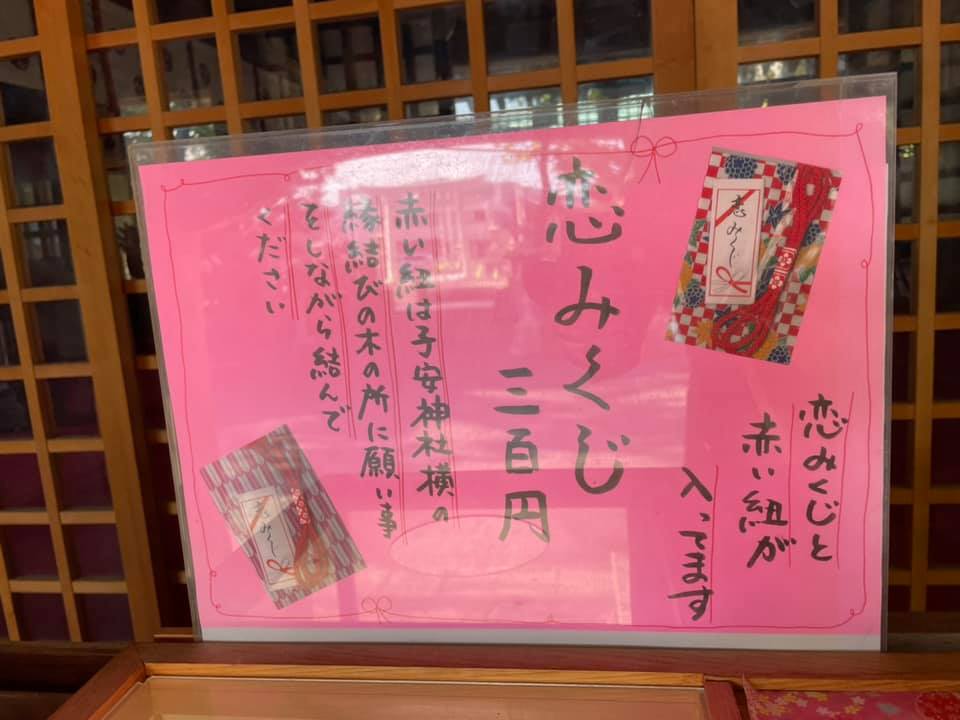 恋みくじ
恋みくじと
赤い紐が
入ってます
恋みくじ
三百円
赤い紐は子安神社横の
縁結びの木の所に願い事
をしながら結んで
ください
恋みくじ